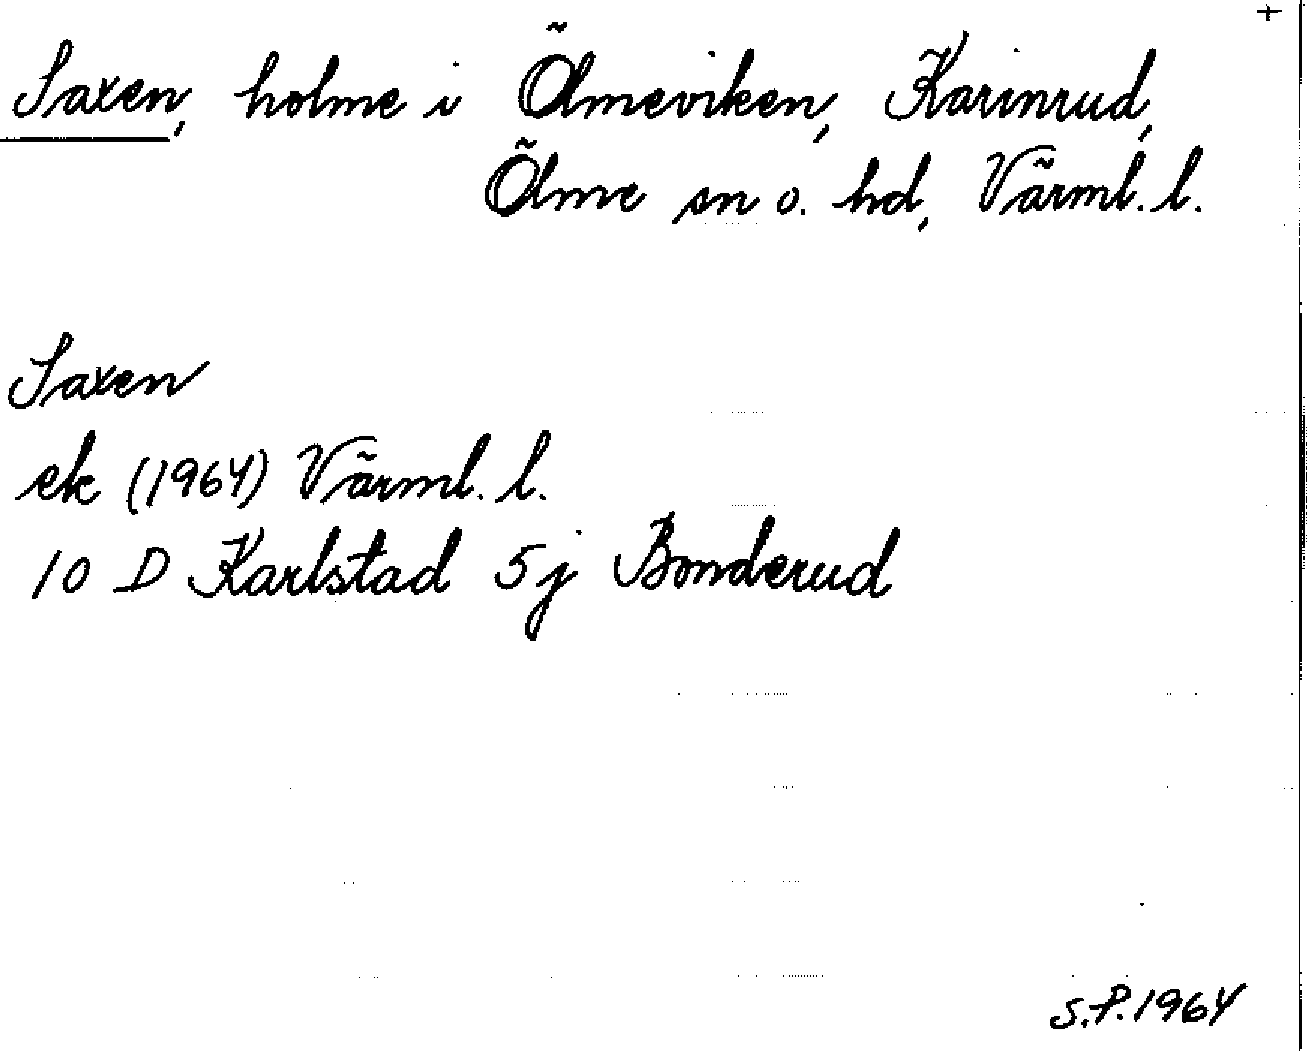 +
Saxen, holme i Ölmeviken, Karinrud,
Ölme sn o. hd, Värml. l.
Saxen
ek (1964) Värml. l.
10 D Karlstad 5j Bonderud
S.P. 1964